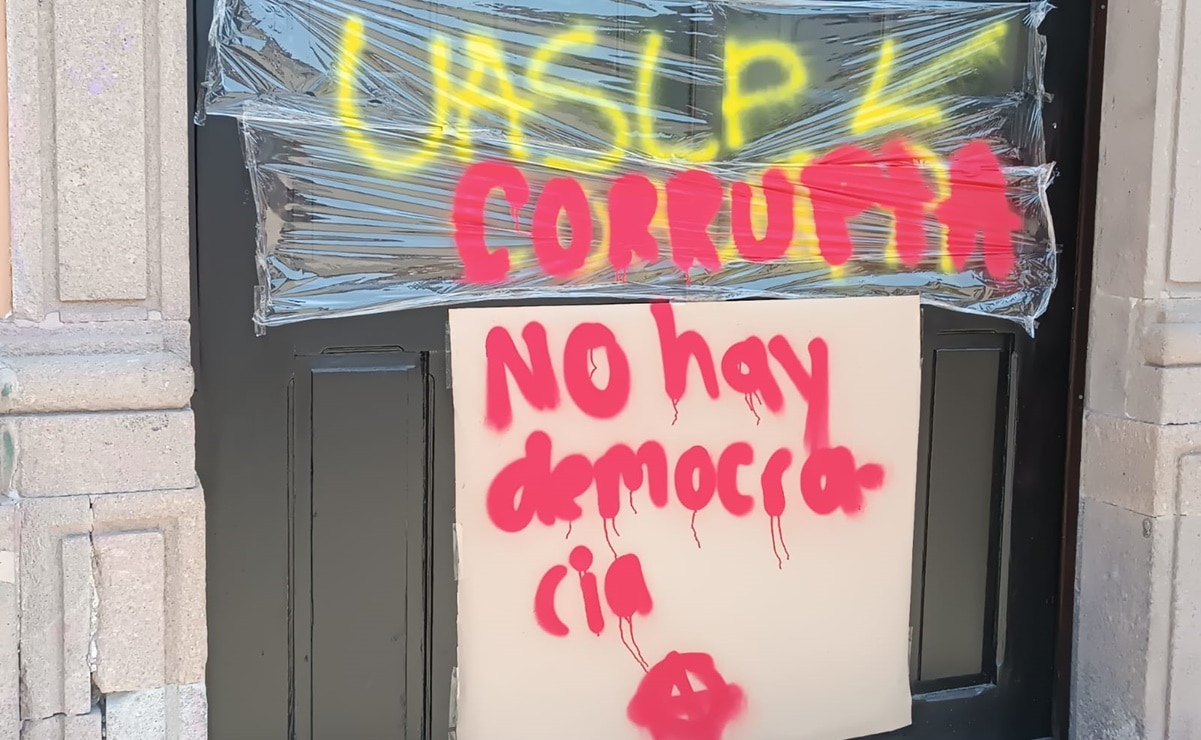 UASLP
CORRUPTA
NO hay
democra
cia